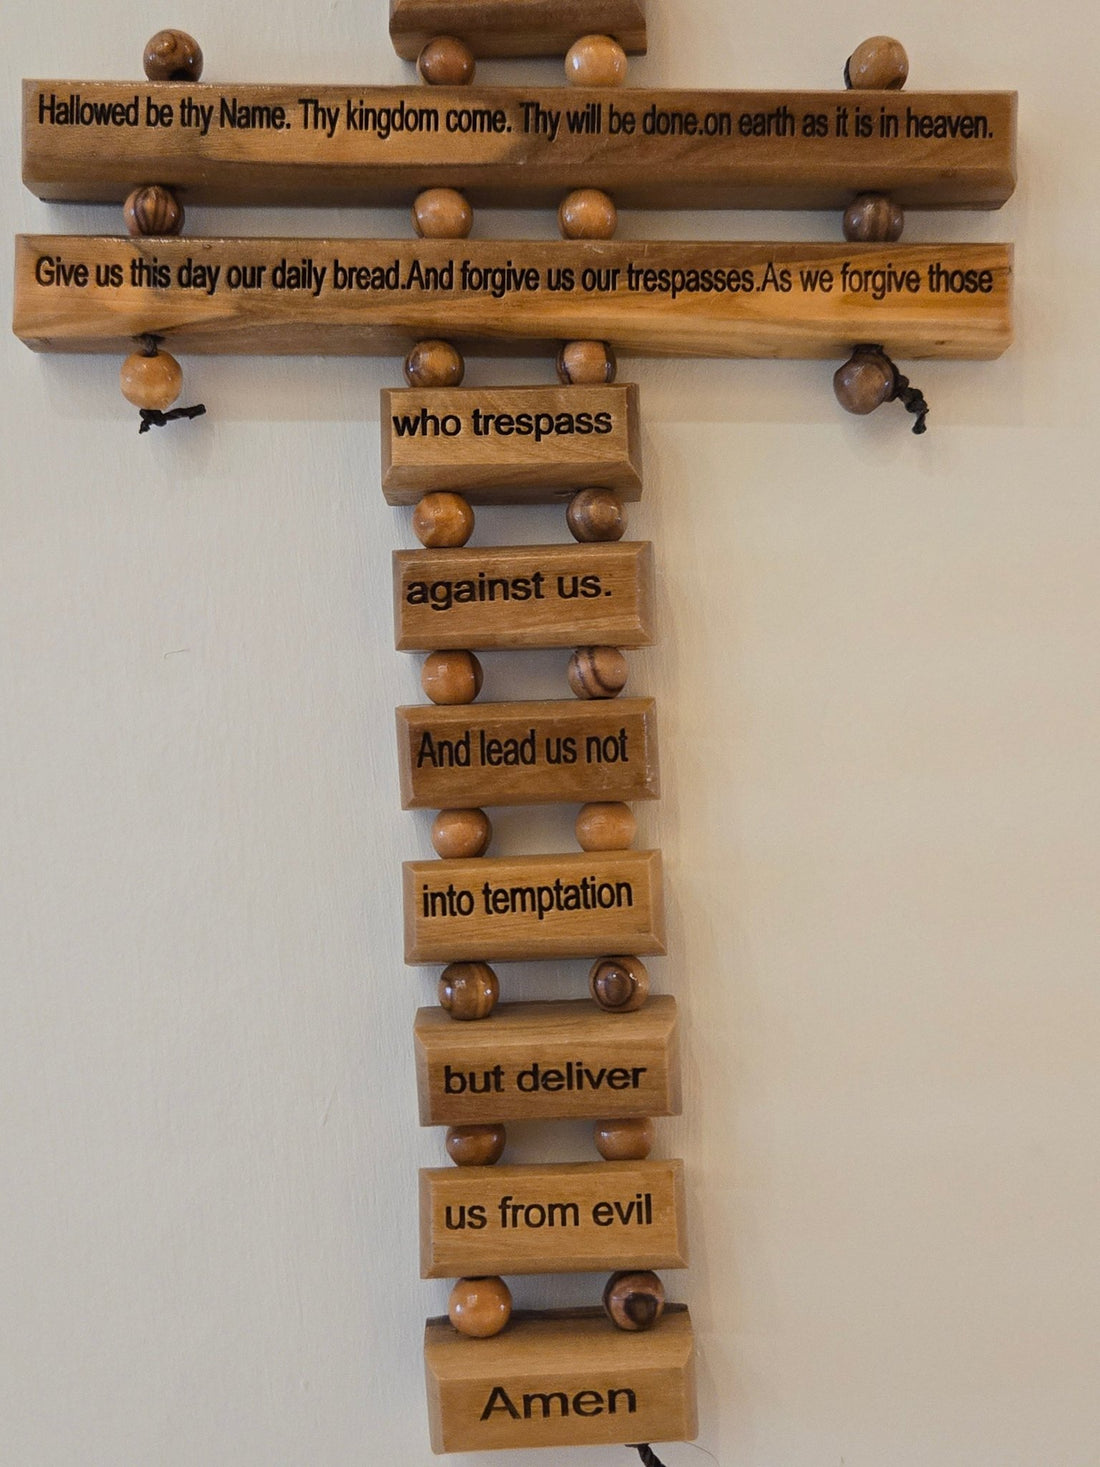 Hallowed be thy Name. Thy kingdom come. Thy will be done.on earth as it is in heaven.
Give us this day our daily bread.And forgive us our trespasses.As we forgive those
who trespass
against us.
And lead us not
into temptation
but deliver
us from evil
Amen